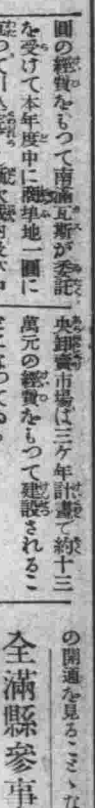 圓の經費をもつて南滿瓦斯が委託
を受けて本年度中に商埠地一圓に
央卸賣市場は三ケ年計畫で約十三
萬元の經費をもつて建設されるこ
の開通を見ること、な
全滿縣參事